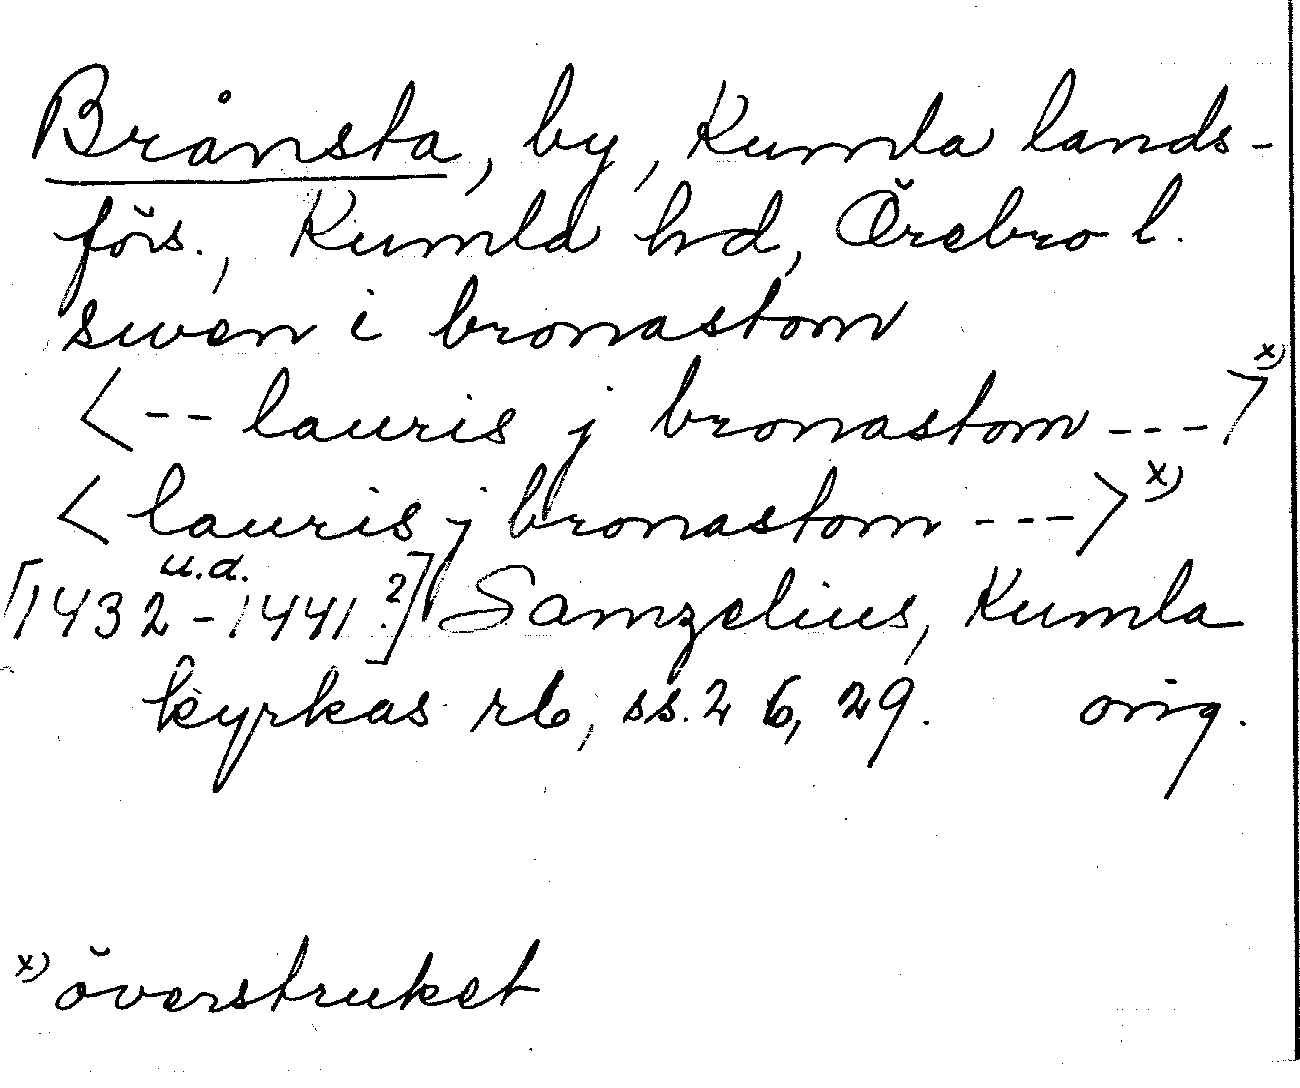 Brånsta, by, Kumla lands-
förs., Kumla hd, Örebro l.
swen i bronastom
<-- lauris j bronastom --->x)
< lauris j bronastom --->x)
u.d.
[1432-1441?] Samzelius, Kumla
kyrkas rb, ss. 26, 29. orig.
x) överstruket